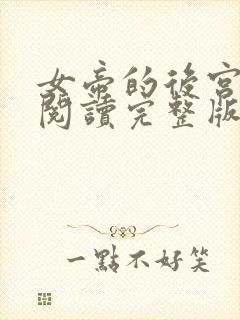 女帝的後宮
閱讀完整版
一點不好笑